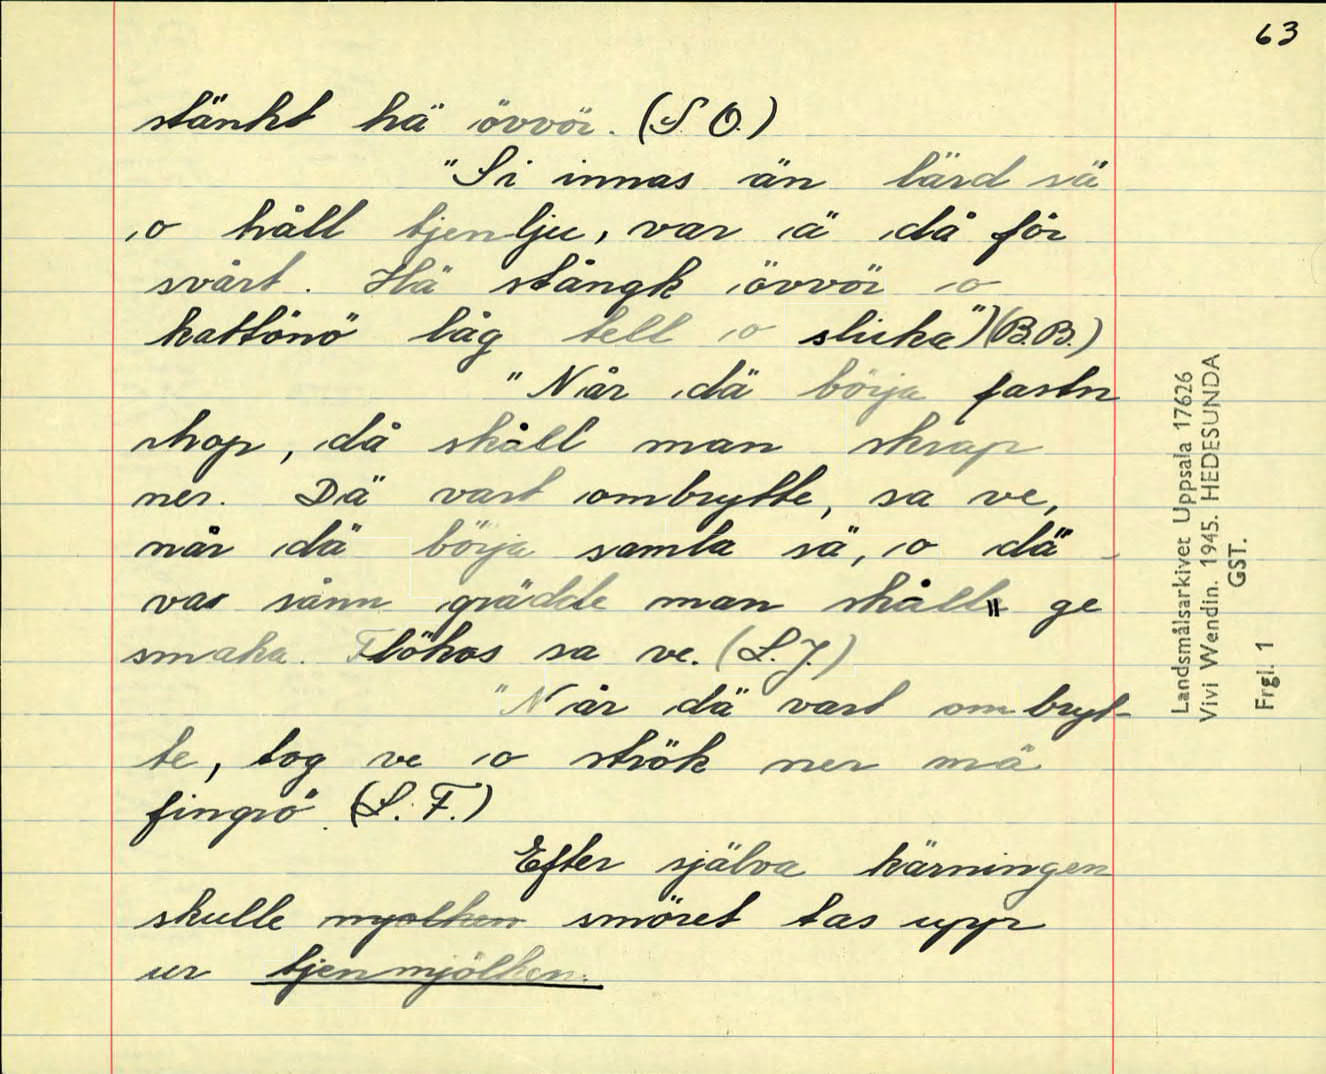 63
stänkt hä övvör. (S.O.)
"Si innas än lärd sä
o håll tjenlju, var ä då för
svårt. Hä stångk övvör o
kattönö låg tell o slicka") (B.B.)
"Når dä börja fastn
ihop, då skåll man skrap
ner. Dä vart ombrytte, sa ve,
når dä börja samla sä, o dä
var sånn grädde man skålle ge
smaka. Flökos sa ve. (L.J.)
"Når dä vart ombryt-
te, tog ve o strök ner mä
fingrö. (L.F.)
Efter själva kärningen
skulle mjölken smöret tas upp
ur tjenmjölken.
Landsmålsarkivet Uppsala 17626
Vivi Wendin. 1945. HEDESUNDA
GST.
Frgl. 1